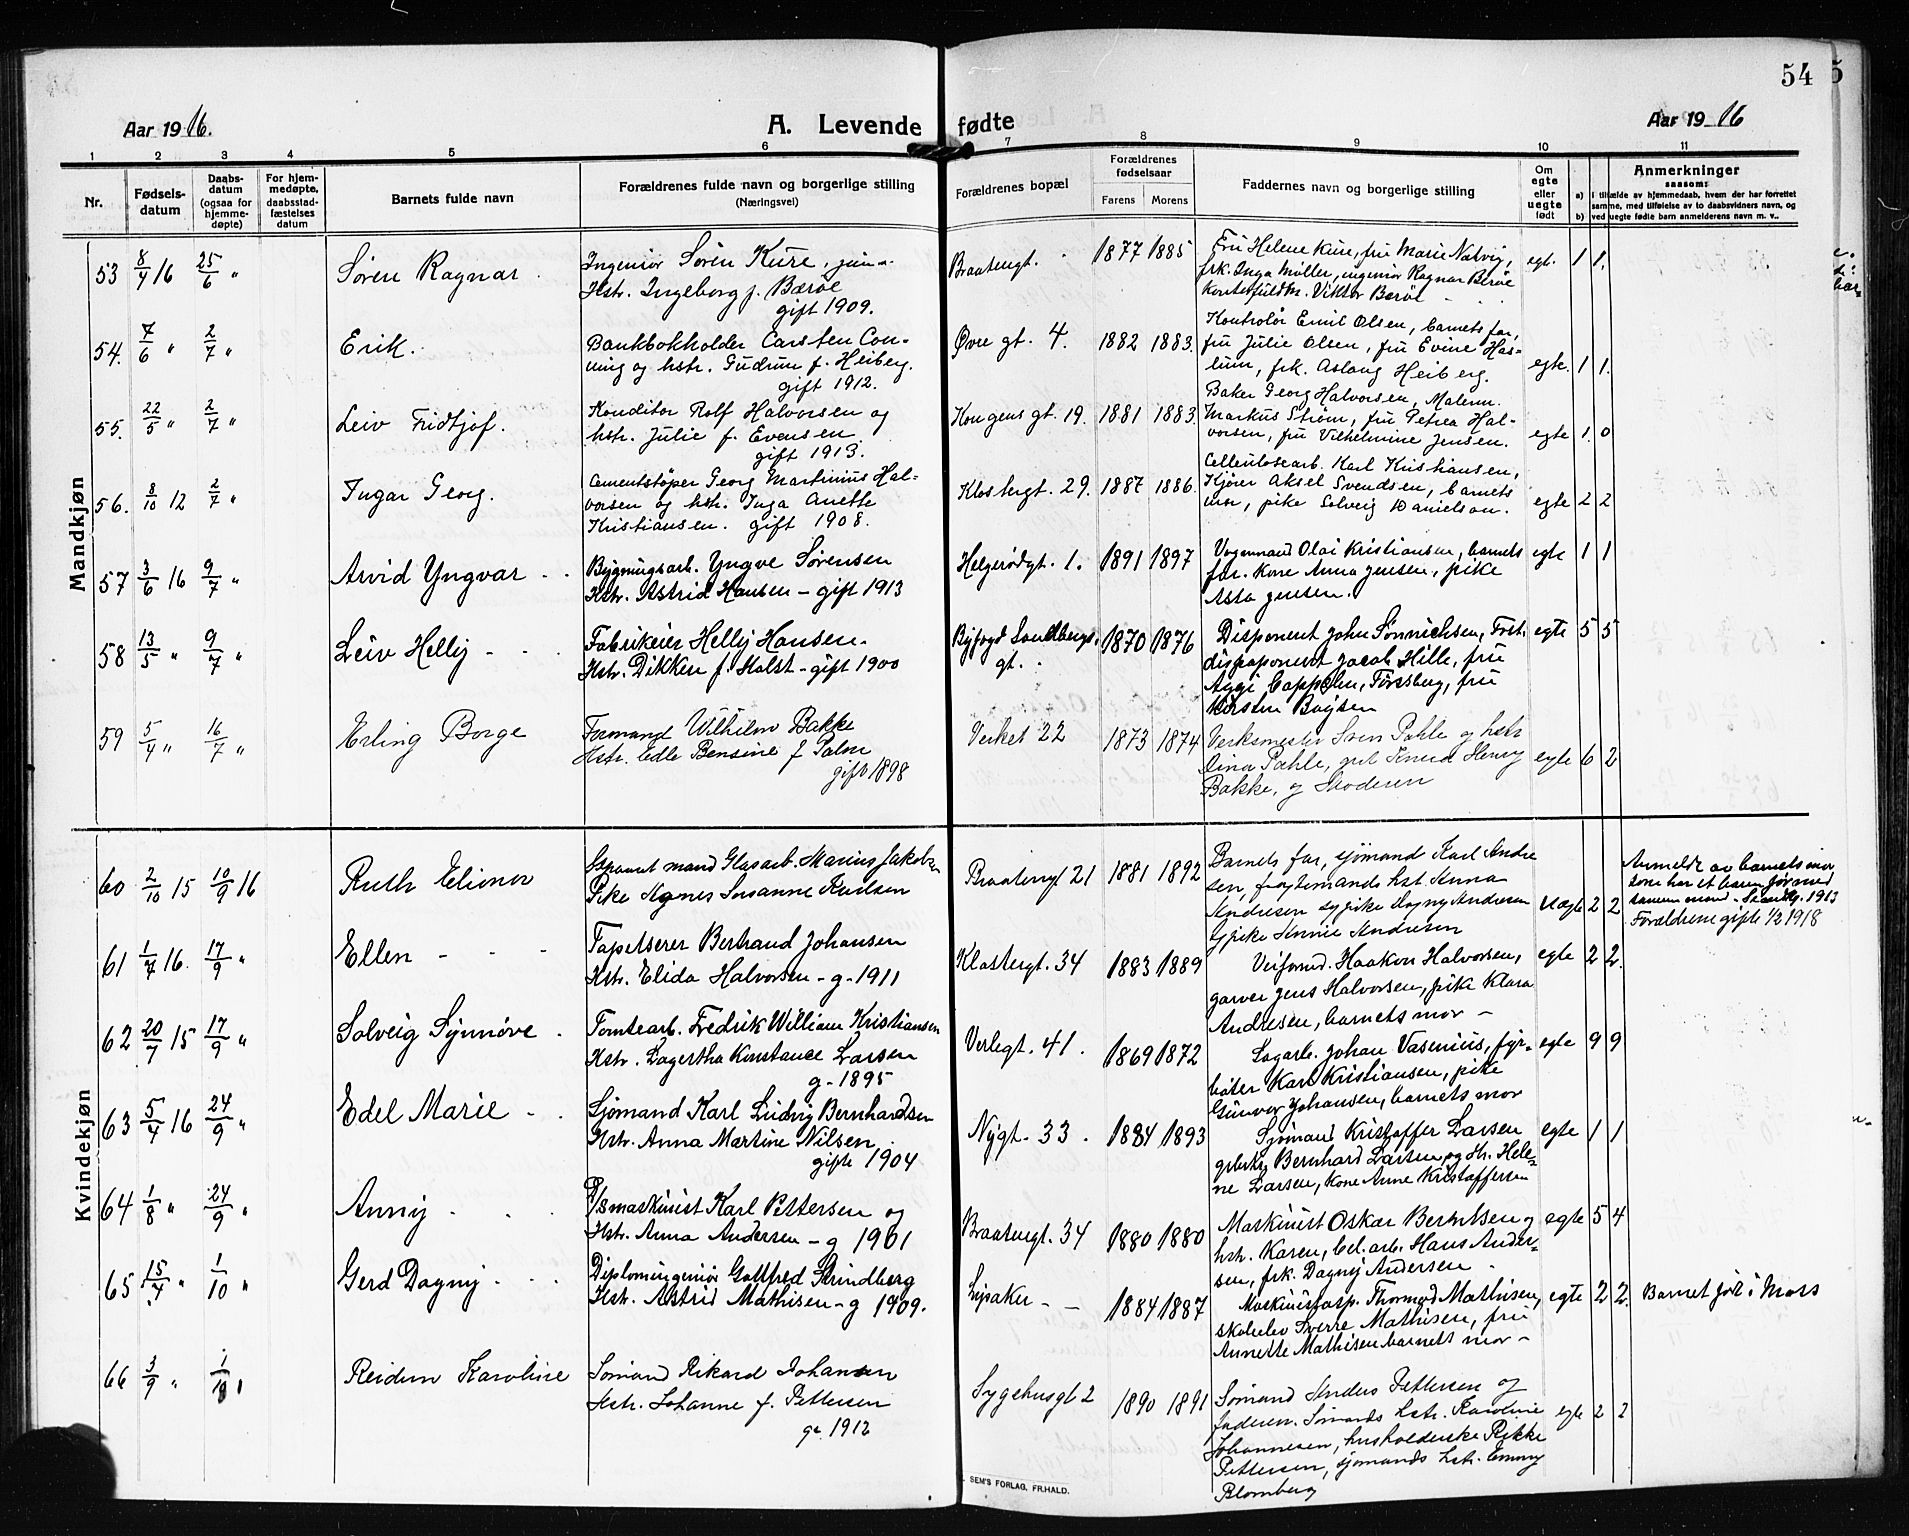 54
Aar 1916.
A. Levende fødte
Aar 1916
1 2 3 4 5 6 7 8 9 10 11
Nr.
Fødsels-
datum
Daabs-
datum
(ogsaa for
hjemme-
døpte)
For hjem-
medøpte,
daabsstad-
fæstelses
datum
Barnets fulde navn
Forældrenes fulde navn og borgerlige stilling
(Næringsvei)
Forældrenes bopæl
Forældrenes
fødselsaar
Farens Morens
Faddernes navn og borgerlige stilling
Om
egte
eller
uegte
født
a)
b)
Anmerkninger
saasom:
I tilfælde av hjemmedaab, hvem der har forrettet
samme, med tilføielse av to daabsvidners navn, og
ved uegte fødte barn anmelderens navn m. v.,
Mandkjøn
53 8/4 16 25/6 " Søren Ragnar
Ingeniør Søren Kure, jun.
Hstr. Ingeborg f. Børøe
gift 1909.
Braatengt. 1877 1885
Fru Helene Kure, fru Marie Natvig,
frk. Inga Møller, ingeniør Ragnar Børøe
Viktor Børøe
egt. 1 1.
54. 7/6 " 2/7 " Erik.
Bankbokholder Carsten Con-
ning og hstr. Gudrun f. Heiberg.
gift 1912.
Øvre gt. 4. 1882 1883.
Kontrolør Emil Olsen, barnets far,
fru Julie Olsen, fru Evine Has-
lum, frk. Aslaug Heiberg.
egte. 1 1.
55. 22/5 " 2/7 " Leiv Fridtjof.
Konditor Rolf Halvorsen og
hstr. Julie f. Evensen
gift 1913.
Kongens gt. 19. 1881 1883.
Baker Georg Halvorsen, Malerm.
Markus Strøm, fru Petrea Hal-
vorsen, fru Vilhelmine Jensen.
egte 1. 0
56. 8/10 12 2/7 " Ingar Georg.
Cementstøper Georg Martinius Hal-
vorsen og hstr. Inga Anette
Kristiansen. gift 1908.
Klostergt. 29. 1887 1886.
Cellulosearb. Karl Kristiansen,
Kjører Aksel Svendsen, barnets
mor, pike Solveig Danielson.
egte 2 2
57 3/6 16 9/7 " Arvid Yngvar
Bygningsarb. Yngve Sørensen
Hstr. Astrid Hansen - gift 1913
Helgerødgt. 1. 1891 1897
Vognmand Olai Kristiansen, barnets
far. Kone Anna Jensen, pike
Asta Jensen.
egte 1 1
58 13/5 " 9/7 " Leiv Helly
Fabrikeier Helly Hansen
Hstr. Dikken f. Holst - gift 1900
Byfogd Sandbergs
gt. 1870 1876
Disponent John Sønnichsen, Forst.
dispaponent Jacob Hille, fru
Aggi Cappelen, Tønsberg, fru
Kirsten Boysen
egte 5 5
59 5/4 " 16/7 " Erling Borge
Formand Wilhelm Bakke
Hstr. Edle Bensine f Palm
gift 1898
Verket 22 1873 1874
Verksmester Sven Pahle og hstr
Dina Pahle, Knud Henry
Bakke, og Moderen
egte 6 2
Kvindekjøn
60 2/10 15 10/9 16 Ruth Elionor
Separert mand Glasarb. Marius Jakobsen
Pike Agnes Susanne Karlsen
Braatengt 21 1881 1892
Barnets far, sjømand Karl Andre
sen, fragtemands hst. Anna
Andresen sypike Dagny Andresen
Sypike Annie Andresen
Uegte 2 2
Anmeldt av barnets mor
som har et barn før med
samme mand - 1913
Forældrene gifte 1/2 1918
61 1/7 16. 17/9 " Ellen
Tapetserer Bertrand Johansen
Hstr. Elida Halvorsen - g. 1911
Klostergt. 34 1883 1889
Veiformd. Haakon Halvorsen,
garver Jens Halvorsen, pike Klara
Andresen, barnets mor -
egte 2 2.
62 20/7 15 17/9 " Solveig Synnøve
Tomtearb. Fredrik William Kristiansen
Hstr. Dagertha Konstance Larsen
g. 1895
Verlegt. 41. 1869 1872
Sagarb. Johan Vasenius, fyr-
bøter Karl Kristiansen, pike
Gunvor Johansen, barnets mor
egte 9 9
63 5/4 16 24/9 " Edel Marie
Sjømand Karl Ludvig Bernhardsen
Hstr. Anna Martine Nilsen
gifte 1904
Nygt. 33. 1884 1893
Sjømand Kristoffer Larsen
Bernhard Larsen og Str. Hele-
ne Larsen, kone Anne Kristoffersen
egte 1 1
64 1/8 " 24/9 " Anny
P/smaskinist Karl Pettersen og
Hstr. Anna Andersen - g 1901
Braatengt. 34 1880 1880
Maskinist Oskar Berntsen og
hstr. Karen, cel. arb. Hans Ander-
sen, frk. Dagny Andersen
egte 5 4
65 15/4 " 1/10 " Gerd Dagny
Diplomingeniør Gottfred Strindberg
Hstr. Astrid Mathisen - g 1909.
Lysaker - - 1884 1887
Maskinistasp. Thormod Mathisen,
skoleelev Sverre Mathisen, fru
Annette Mathisen barnets mor -
egte 2 2.
Barnet før i Moss
66 3/9 " 1/10 " Reidun Karoline
Sømand Rikard Johansen
Hstr. Johanne f. Pettersen
g. 1912
Sygehusgt 2 1890 1891
Sømand Anders Pettersen og
faderen. Sømands hstr. Karoline
Johannesen, husholderske Rikke
Pettersen, sjømands hstr. Emmy
Blomberg
egte 2 2
SEM'S FORLAG, FR.HALD.